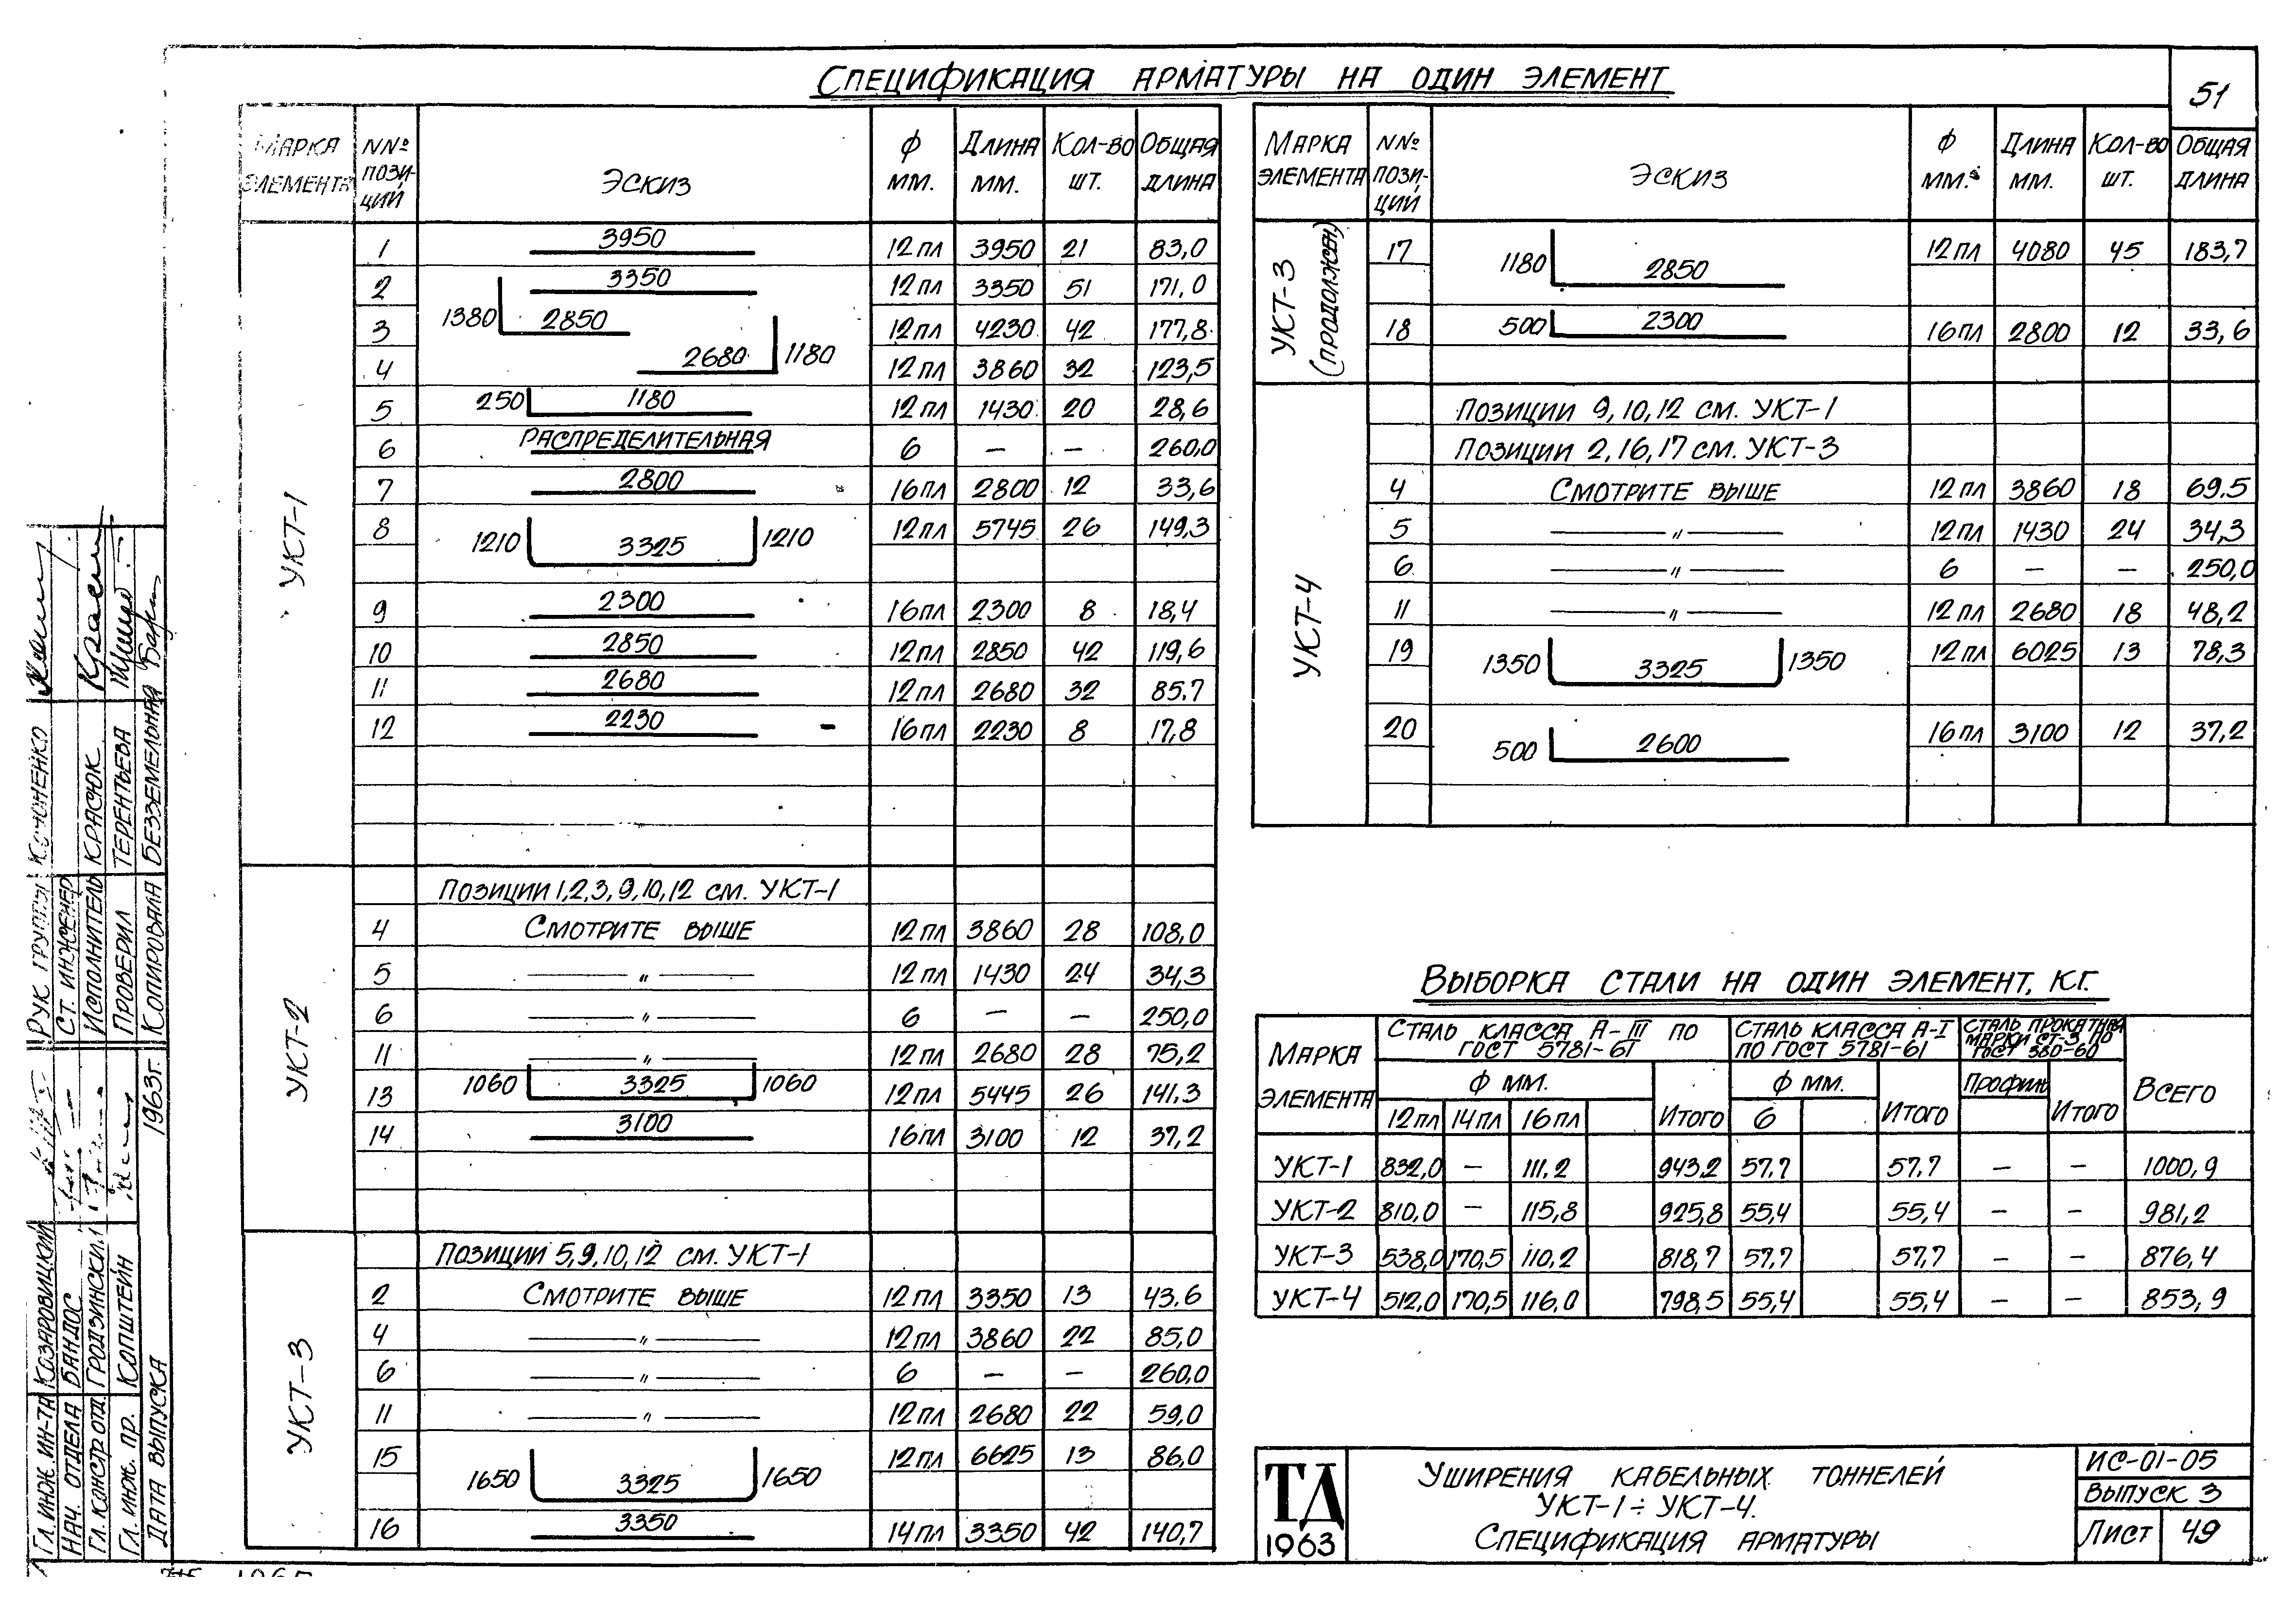 51
Спецификация арматуры на один элемент
Марка элемента | NNº позиций | Эскиз | ф мм. | Длина мм. | Кол-во шт. | Общая длина
УКТ-1
1 | 3950 | 12пл | 3950 | 21 | 83,0
2 | 3350 | 12пл | 3350 | 51 | 171,0
3 | 1380 2850 | 12пл | 4230 | 42 | 177,8
4 | 2680 1180 | 12пл | 3860 | 32 | 123,5
5 | 250 1180 | 12пл | 1430 | 20 | 28,6
6 | Распределительная | 6 | — | — | 260,0
7 | 2800 | 16пл | 2800 | 12 | 33,6
8 | 1210 3325 1210 | 12пл | 5745 | 26 | 149,3
9 | 2300 | 16пл | 2300 | 8 | 18,4
10 | 2850 | 12пл | 2850 | 42 | 119,6
11 | 2680 | 12пл | 2680 | 32 | 85.7
12 | 2230 | 16пл | 2230 | 8 | 17,8
УКТ-2
Позиции 1,2,3,9,10,12 см. УКТ-1
4 | Смотрите выше | 12пл | 3860 | 28 | 108,0
5 | — " — | 12пл | 1430 | 24 | 34,3
6 | — " — | 6 | — | — | 250,0
11 | — " — | 12пл | 2680 | 28 | 75,2
13 | 1060 3325 1060 | 12пл | 5445 | 26 | 141.3
14 | 3100 | 16пл | 3100 | 12 | 37,2
УКТ-3
Позиции 5,9,10,12 см. УКТ-1
2 | Смотрите выше | 12пл | 3350 | 13 | 43.6
4 | — " — | 12пл | 3860 | 22 | 85,0
6 | — " — | 6 | — | — | 260,0
11 | — " — | 12пл | 2680 | 22 | 59,0
15 | 1650 3325 1650 | 12пл | 6625 | 13 | 86,0
16 | 3350 | 14пл | 3350 | 42 | 140,7
Марка элемента | NNº позиций | Эскиз | ф мм. | Длина мм. | Кол-во шт. | Общая длина
УКТ-3 (продолжен)
17 | 1180 2850 | 12пл | 4080 | 45 | 183,7
18 | 500 2300 | 16пл | 2800 | 12 | 33,6
УКТ-4
Позиции 9,10,12 см. УКТ-1
Позиции 2,16,17 см. УКТ-3
4 | Смотрите выше | 12пл | 3860 | 18 | 69.5
5 | — " — | 12пл | 1430 | 24 | 34,3
6 | — " — | 6 | — | — | 250,0
11 | — " — | 12пл | 2680 | 18 | 48,2
19 | 1350 3325 1350 | 12пл | 6025 | 13 | 78,3
20 | 500 2600 | 16пл | 3100 | 12 | 37,2
Выборка стали на один элемент, кг.
Марка элемента | Сталь класса А-III по ГОСТ 5781-61 | Сталь класса А-I по ГОСТ 5781-61 | Сталь прокатная марки Ст-3 по ГОСТ 380-60 | Всего
ф мм. | Итого | ф мм. | Итого | Профиль | Итого
12пл | 14пл | 16пл | 6
УКТ-1 | 832,0 | — | 111.2 | 943.2 | 57.7 | 57.7 | — | — | 1000,9
УКТ-2 | 810,0 | — | 115,8 | 925,8 | 55,4 | 55,4 | — | — | 981,2
УКТ-3 | 538,0 | 170,5 | 110,2 | 818,7 | 57,7 | 57,7 | — | — | 876,4
УКТ-4 | 512,0 | 170,5 | 116,0 | 798,5 | 55,4 | 55,4 | — | — | 853,9
ТД
1963
Уширения кабельных тоннелей
УКТ-1÷УКТ-4.
Спецификация арматуры
ИС-01-05
Выпуск 3
Лист 49
Гл. инж. ин-та Козаровицкий
Нач. отдела Бандос
Гл. констр отд. Гродзинский
Гл. инж. пр. Копштейн
Дата выпуска 1963г.
Рук группы Кононенко
Ст. инженер
Исполнитель Красюк
Проверил Терентьева
Копировала Безземельная